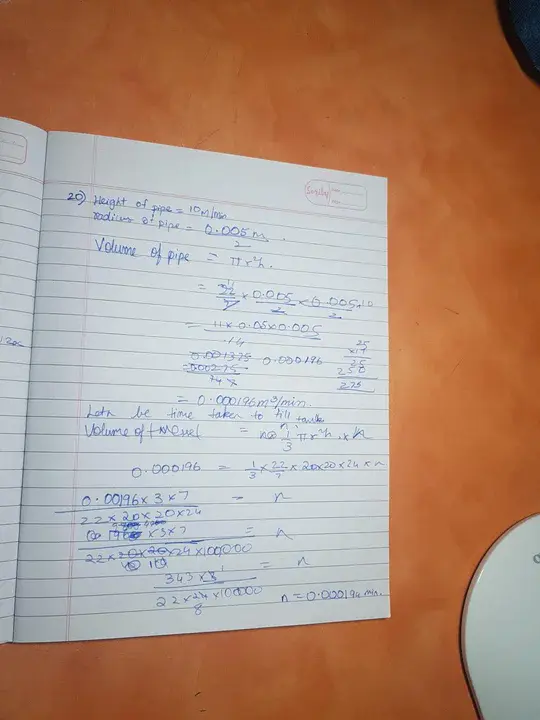 20) Height of pipe = 10 M/min
radius of pipe = 0.005 m
2
Volume of pipe = πr²h.
= 22/7 × 0.005/2 × 0.005/2 × 10
= 11 × 0.05 × 0.005
14
0.001375 0.000196
= 0.00275
25
×11
25
250
275
= 0.000196 m³/min.
Let n be time taken to fill tank
Volume of funnel = 1/3 πr²h × n
0.000196 = 1/3 × 22/7 × 20 × 20 × 24 × n
0.00196 × 3 × 7 = n
22 × 20 × 20 × 24
196 × 3 × 7 = n
22 × 20 × 20 × 24 × 100000
10 10
343 × 8 = n
22 × 24 × 10000
8
n = 0.000194 min.